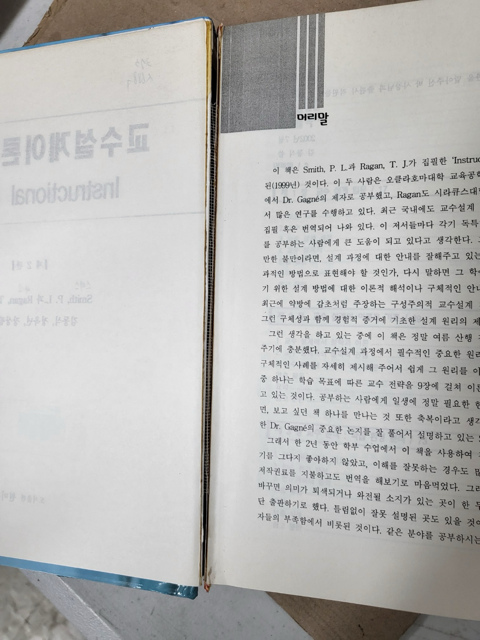 머리말
이 책은 Smith, P. L.과 Ragan, T. J.가 집필한 'Instruc
된(1999년) 것이다. 이 두 사람은 오클라호마대학 교육공학
에서 Dr. Gagné의 제자로 공부했고, Ragan도 시라큐스대
서 많은 연구를 수행하고 있다. 최근 국내에도 교수설계
집필 혹은 번역되어 나와 있다. 이 저서들마다 각기 독특
를 공부하는 사람에게 큰 도움이 되고 있다고 생각한다.
만한 불만이라면, 설계 과정에 대한 안내를 잘해주고 있는
과적인 방법으로 표현해야 할 것인가, 다시 말하면 그 학
기 위한 설계 방법에 대한 이론적 해석이나 구체적인 안내
최근에 약방에 감초처럼 주장하는 구성주의적 교수설계
그런 구체성과 함께 경험적 증거에 기초한 설계 원리의 제
그런 생각을 하고 있는 중에 이 책은 정말 여름 산행
주기에 충분했다. 교수설계 과정에서 필수적인 중요한 원리
구체적인 사례를 자세히 제시해 주어서 쉽게 그 원리를 이
중 하나는 학습 목표에 따른 교수 전략을 9장에 걸쳐 이론
고 있는 것이다. 공부하는 사람에게 일생에 정말 필요한 한
면, 보고 싶던 책 하나를 만나는 것 또한 축복이라고 생각
한 Dr. Gagné의 중요한 논지를 잘 풀어서 설명하고 있는
그래서 한 2년 동안 학부 수업에서 이 책을 사용하여
기를 그다지 좋아하지 않았고, 이해를 잘못하는 경우도 많
저작권료를 지불하고도 번역을 해보기로 마음먹었다. 그러
바꾸면 의미가 퇴색되거나 와전될 소지가 있는 곳이 한 두
단 출판하기로 했다. 틀림없이 잘못 설명된 곳도 있을 것이
자들의 부족함에서 비롯된 것이다. 같은 분야를 공부하시는